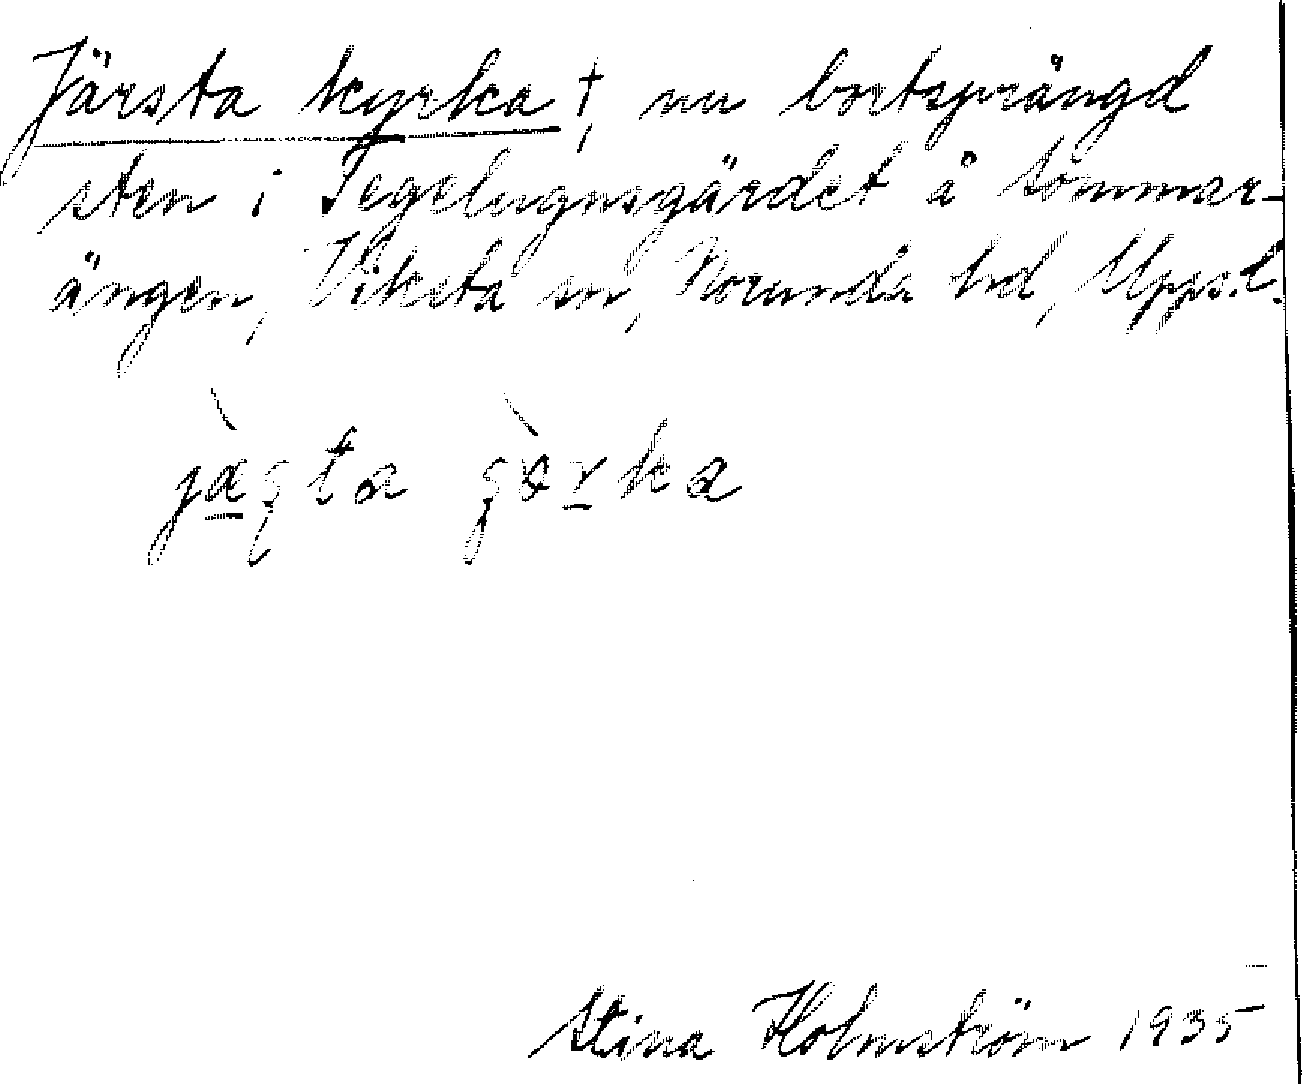 Järsta kyrka †, nu bortsprängd
sten i Tegelugnsgärdet å Sommar-
ängen, Viksta sn, Norunda hd, Uppsl.
Stina Holmström 1935